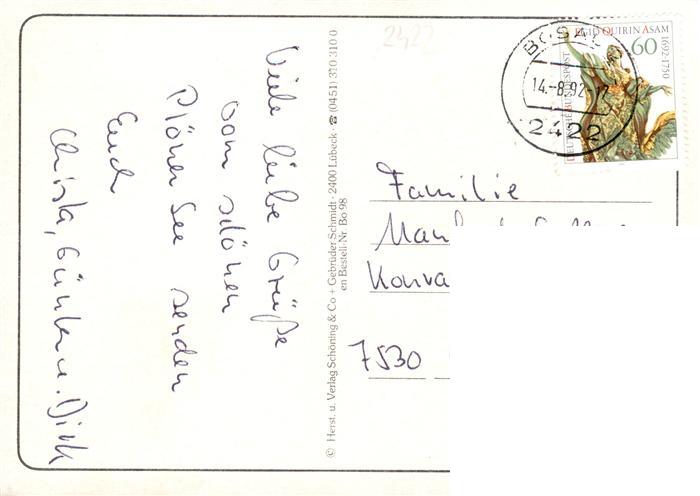 Viele liebe Grüße
vom schönen
Plöner See senden
Euch
Christa, Günter u. Dirk
© Herst. u. Verlag Schöning & Co + Gebrüder Schmidt · 2400 Lübeck · ☎ (0451) 310 310 0
en Bestell-Nr. Bo 98
2422
BOSAU
14.-8.92-17
2422
EGID QUIRIN ASAM
1692-1750
60
DEUTSCHE BUNDESPOST
Familie
Konra
7530